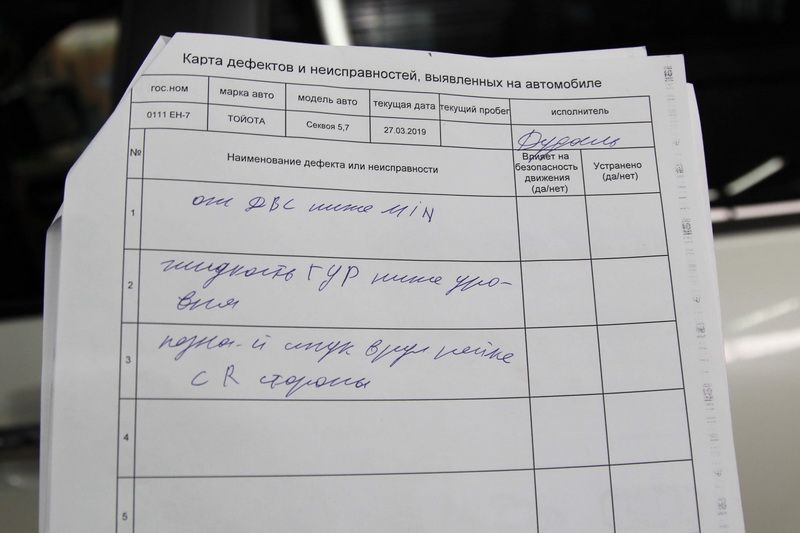 Карта дефектов и неисправностей, выявленных на автомобиле
гос.ном марка авто модель авто текущая дата текущий пробег исполнитель
0111 ЕН-7 ТОЙОТА Секвоя 5,7 27.03.2019
№ Наименование дефекта или неисправности Влияет на безопасность движения (да/нет) Устранено (да/нет)
1 ож ДВС ниже MIN
2 жидкость ГУР ниже уро-
вня
3 стук в рул рейке
с R стороны
4
5